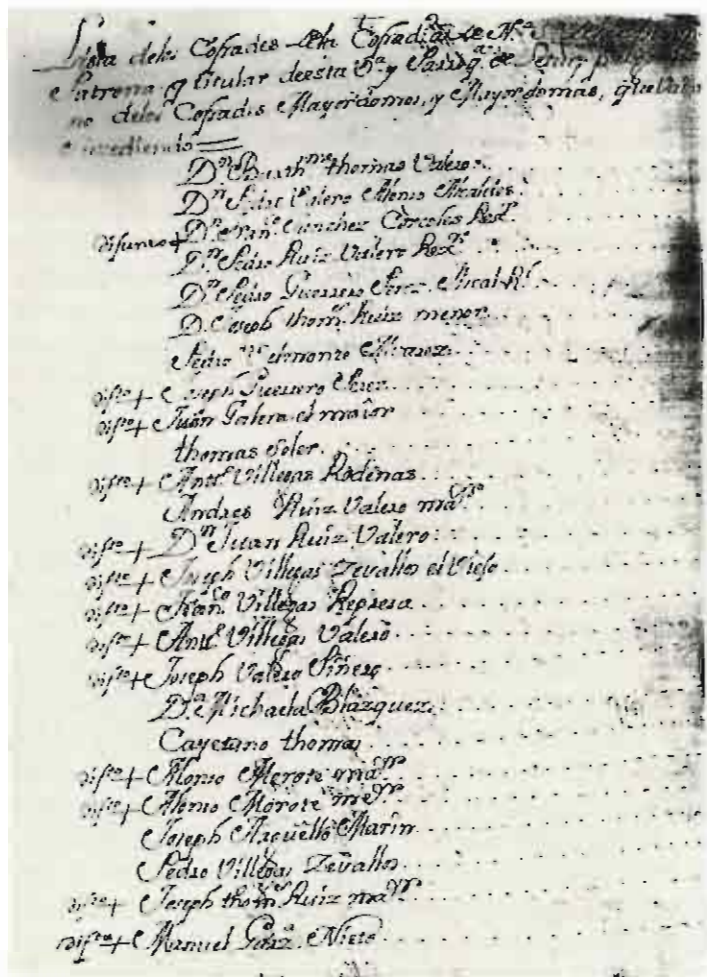 Lista delos Cofrades dela Cofradia de N.ª S.ª
Patrona y titular deesta V.ª y Parroq.ª de
no delos Cofrades Mayordomos, y Mayordomas, que
D.n Barth.me thomas Valero
D.n Valero Alonso Alcaldes
Difunto + D.n Fran.co Sanchez Corcoles Rex.r
D.n Pedro Ruiz Valero Rex.r
D.n Pedro Guerrero Perez
D. Joseph thom.s Ruiz menor
Pedro Alvarez
Dif.to + Joseph Guerrero Perez
Dif.to + Juan Galera el maior
thomas Soler
Dif.to + Ant.o Villegas Rodenas
Andres Ruiz Valero ma.or
Dif.to + D.n Juan Ruiz Valero
Dif.to + Joseph Villegas Zevallos el Viejo
Dif.to + Fran.co Villegas Represa
Dif.to + Ant.o Villegas Valero
Dif.to + Joseph Valero Piñero
D.ª Michaela Blazquez
Cayetano thomas
Dif.to + Alonso Morote ma.or
Dif.to + Alonso Morote me.or
Joseph Arguello Marin
Pedro Villegas Zevallos
Dif.to + Joseph thom.s Ruiz ma.or
Dif.to + Manuel Garz.ª Nieto